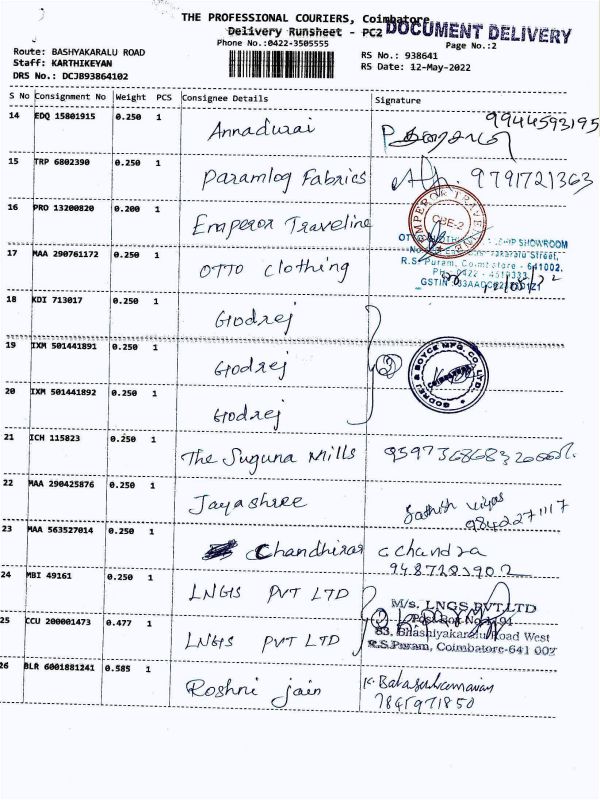 THE PROFESSIONAL COURIERS, Coimbatore
DOCUMENT DELIVERY
Delivery Runsheet - PC2
Phone No.:0422-3505555
Page No.:2
Route: BASHYAKARALU ROAD
Staff: KARTHIKEYAN
DRS No.: DCJB93864102
RS No.: 938641
RS Date: 12-May-2022
S No Consignment No Weight PCS Consignee Details Signature
14 EDQ 15801915 0.250 1 Annadurai 9944593195
15 TRP 6802390 0.250 1 Paramlog Fabrics 9791721363
16 PRO 13200820 0.200 1 Emperor Traveline
EMPEROR TRAVEL CBE-2
17 MAA 290761172 0.250 1 OTTO Clothing
SHOWROOM
R.S. Puram, Coimbatore - 641002.
GSTIN
18 KDI 713017 0.250 1 Godrej
19 IXM 501441891 0.250 1 Godrej 3
GODREJ & BOYCE MFG. CO. LTD.
20 IXM 501441892 0.250 1 Godrej
21 ICH 115823 0.250 1 The Suguna Mills
22 MAA 290425876 0.250 1 Jayashree Sathish
9842271117
23 MAA 563527014 0.250 1 c chandra
24 MBI 49161 0.250 1 LNGS PVT LTD
M/s. LNGS PVT.LTD
25 CCU 200001473 0.477 1 LNGS PVT LTD
83, Bhashiyakaralu Road West
R.S.Puram, Coimbatore-641 002
26 BLR 6001881241 0.585 1 Roshni jain K. Balasubramaniam
7845971850